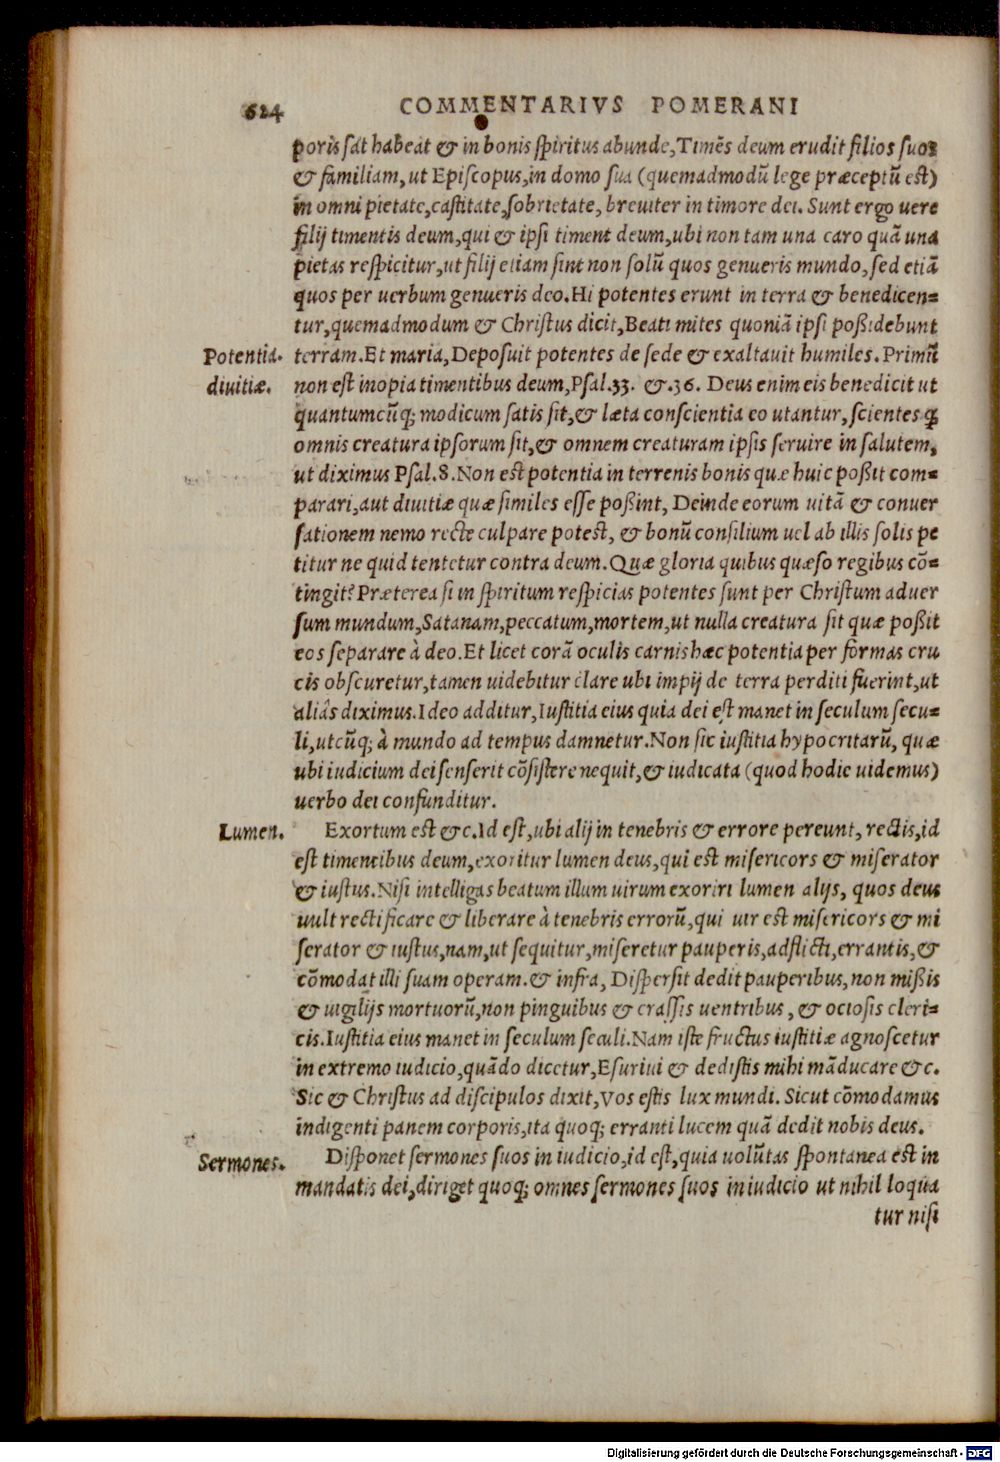 624 COMMENTARIVS POMERANI
poris sat habeat & in bonis spiritus abunde, Timẽs deum erudit filios suos
& familiam, ut Episcopus, in domo sua (quemadmodũ lege præceptũ est)
in omni pietate, castitate, sobrietate, breuiter in timore dei. Sunt ergo uere
filij timentis deum, qui & ipsi timent deum, ubi non tam una caro quã una
pietas respicitur, ut filij etiam sint non solũ quos genueris mundo, sed etiã
quos per uerbum genueris deo. Hi potentes erunt in terra & benedicen=
tur, quemadmodum & Christus dicit, Beati mites quoniã ipsi poßidebunt
Potentia. terram. Et maria, Deposuit potentes de sede & exaltauit humiles. Primũ
diuitiæ. non est inopia timentibus deum, Psal.33. &.36. Deus enim eis benedicit ut
quantumcũq; modicum satis sit, & læta conscientia eo utantur, scientes ꝙ
omnis creatura ipsorum sit, & omnem creaturam ipsis seruire in salutem,
ut diximus Psal.8. Non est potentia in terrenis bonis quæ huic poßit com=
parari, aut diuitiæ quæ similes esse poßint, Deinde eorum uitã & conuer
sationem nemo recte culpare potest, & bonũ consilium uel ab illis solis pe
titur ne quid tentetur contra deum. Quæ gloria quibus quæso regibus cõ=
tingit? Præterea si in spiritum respicias potentes sunt per Christum aduer
sum mundum, Satanam, peccatum, mortem, ut nulla creatura sit quæ poßit
eos separare à deo. Et licet corã oculis carnis hæc potentia per formas cru
cis obscuretur, tamen uidebitur clare ubi impij de terra perditi fuerint, ut
aliâs diximus. Ideo additur, Iustitia eius quia dei est manet in seculum secu=
li, utcũq; à mundo ad tempus damnetur. Non sic iustitia hypocritarũ, quæ
ubi iudicium dei senserit cõsistere nequit, & iudicata (quod hodie uidemus)
uerbo dei confunditur.
Lumen. Exortum est &c. Id est, ubi alij in tenebris & errore pereunt, rectis, id
est timentibus deum, exoritur lumen deus, qui est misericors & miserator
& iustus. Nisi intelligas beatum illum uirum exoriri lumen alijs, quos deus
uult rectificare & liberare à tenebris errorũ, qui uir est misericors & mi
serator & iustus, nam, ut sequitur, miseretur pauperis, adflicti, errantis, &
cõmodat illi suam operam. & infra, Dispersit dedit pauperibus, non mißis
& uigilijs mortuorũ, non pinguibus & crassis uentribus, & ociosis cleri=
cis. Iustitia eius manet in seculum seculi. Nam iste fructus iustitiæ agnoscetur
in extremo iudicio, quãdo dicetur, Esuriui & dedistis mihi mãducare &c.
Sic & Christus ad discipulos dixit, Vos estis lux mundi. Sicut cõmodamus
indigenti panem corporis, ita quoq; erranti lucem quã dedit nobis deus.
Sermones. Disponet sermones suos in iudicio, id est, quia uolũtas spontanea est in
mandatis dei, diriget quoq; omnes sermones suos in iudicio ut nihil loqua
tur nisi
Digitalisierung gefördert durch die Deutsche Forschungsgemeinschaft - DFG